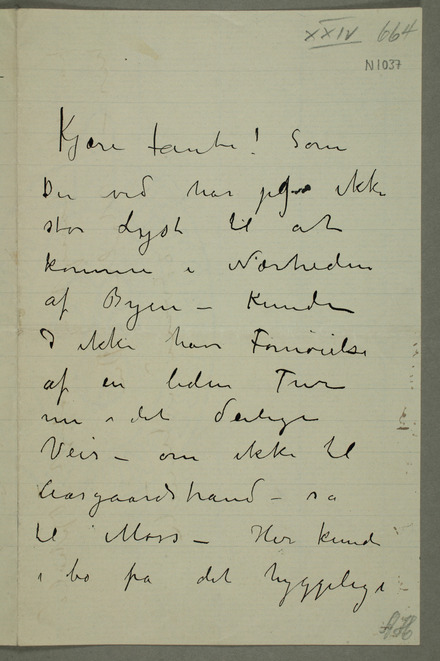 XXIV 664
N1037
Kjære tante! Som
Du ved har jeg ikke
stor Lyst til at
komme i Nærheden
af Byen – Kunde
I ikke have Fornøielse
af en liden Tur
nu i det deilige
Veir – om ikke til
Aasgaardstrand – så
til Moss – Her kunde
i bo på det hyggelige